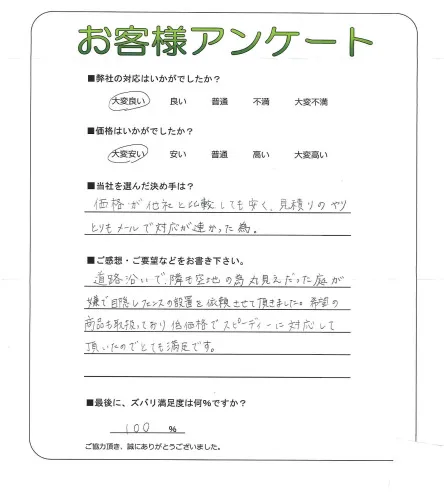 お客様アンケート
■弊社の対応はいかがでしたか？
大変良い 良い 普通 不満 大変不満
■価格はいかがでしたか？
大変安い 安い 普通 高い 大変高い
■当社を選んだ決め手は？
価格が他社と比較しても安く、見積りのやり
とりもメールで対応が速かった為。
■ご感想・ご要望などをお書き下さい。
道路沿いで、隣も空地の為丸見えだった庭が
嫌で目隠しフェンスの設置を依頼させて頂きました。希望の
商品も取扱っており低価格でスピーディーに対応して
頂いたのでとても満足です。
■最後に、ズバリ満足度は何％ですか？
100 ％
ご協力頂き、誠にありがとうございました。